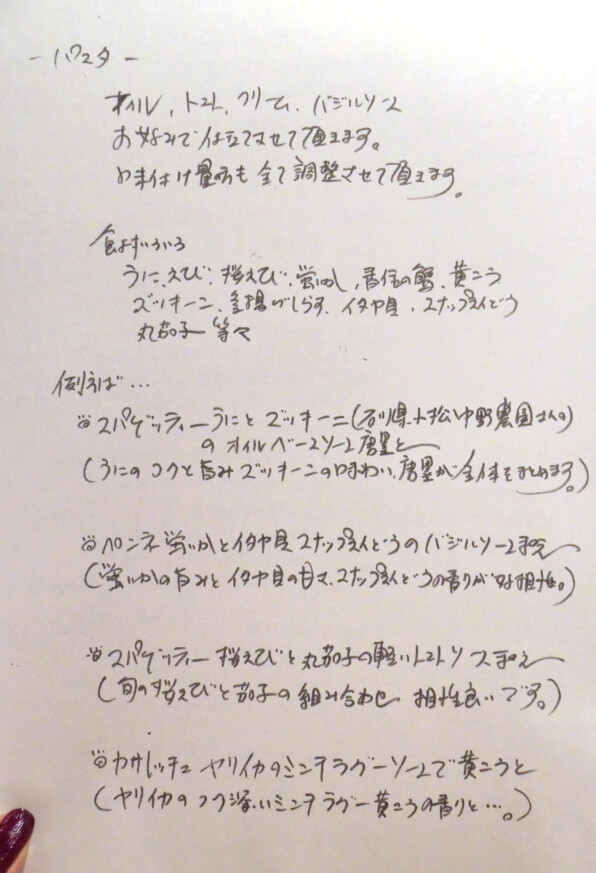 - パスタ -
オイル、トマト、クリーム、バジルソース
お好みで仕立てさせて頂きます。
お味付け量等も全て調整させて頂きます。
食材いろいろ
うに、えび、桜えび、蛍いか、香住の蟹、黄ニラ
ズッキーニ、釜揚げしらす、イタヤ貝、スナップえんどう
丸茄子 等々
例えば…
スパゲッティー うにとズッキーニ(石川県小松、中野農園さんの)
のオイルベースソース 唐墨と
(うにのコクと旨みズッキーニの味わい、唐墨が全体をまとめます。)
ペンネ 蛍いかとイタヤ貝スナップえんどうのバジルソース和え
(蛍いかの旨みとイタヤ貝の甘さ、スナップえんどうの香りが好相性。)
スパゲッティー 桜えびと丸茄子の軽いトマトソース和え
(旬の桜えびと茄子の組み合わせ 相性良いです。)
カサレッチェ ヤリイカのミンチラグーソースで 黄ニラと
(ヤリイカのコク深いミンチラグー 黄ニラの香りと…。)